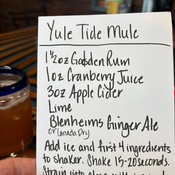 Yule Tide Mule
1 1/2 oz Gosden Rum
1 oz Cranberry Juice
3oz Apple Cider
Lime
Blenheims Ginger Ale
or Canada Dry
Add ice and first 4 ingredients
to shaker. Shake 15-20 seconds.
Strain into